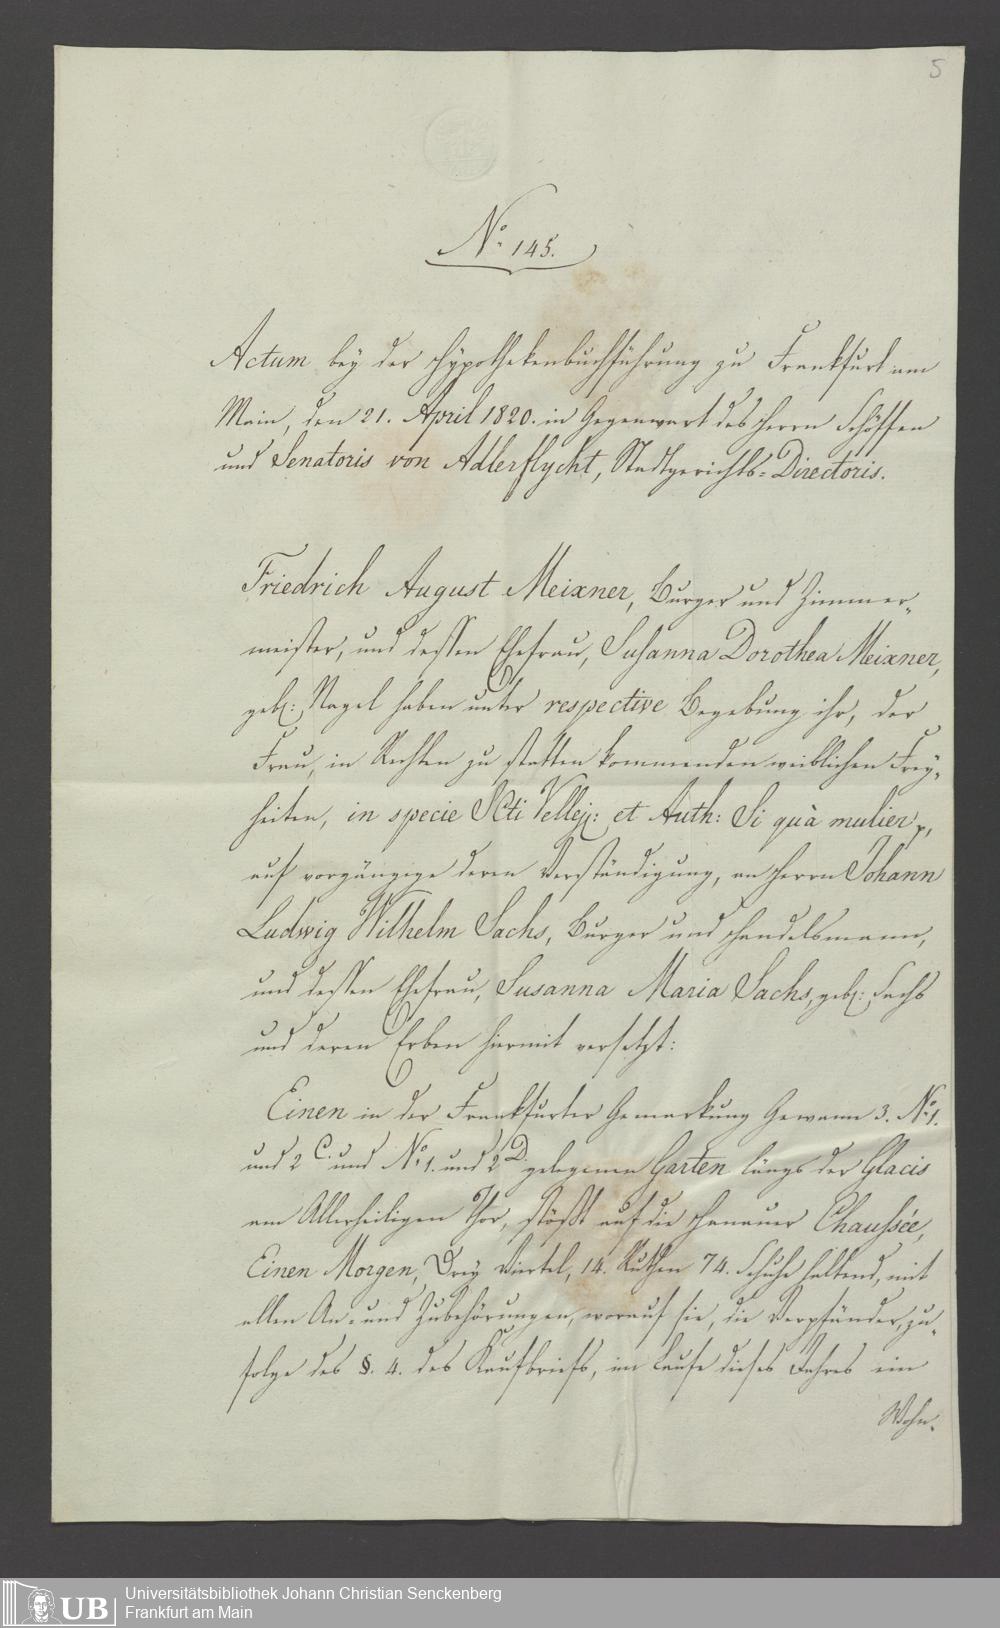 5
No. 145.
Actum bey der Hypothekenbuchführung zu Frankfurt am
Main, den 21. April 1820. in Gegenwart des Herrn Schöffen
und Senatoris von Adlerflycht, Stadtgerichts-Directoris.
Friedrich August Meixner, Burger und Zimmer-
meister, und dessen Ehefrau, Susanna Dorothea Meixner,
geb: Nagel haben unter respective Begebung ihr, der
Frau, in Rechten zu statten kommenden weiblichen Frey-
heiten, in specie SCti Vellej: et Auth: Si quà mulier p,
auf vorgängige deren Verständigung, an Herrn Johann
Ludwig Wilhelm Sachs, Burger und Handelsmann,
und dessen Ehefrau, Susanna Maria Sachs, geb: Sachs
und deren Erben hiermit versetzt:
Einen in der Frankfurter Gemarkung Gewann 3. No. 1.
und 2 C. und No. 1. und 2 D. gelegenen Garten längs der Glacis
am Allerheiligen Thor, stößt auf die Hanauer Chaussée,
Einen Morgen, Drey Viertel, 14. Ruthen 74. Schuhe haltend, mit
allen An- und Zubehörungen, worauf sie, die Verpfänder, zu-
folge des §. 4. des Kaufbriefs, im Laufe dieses Jahres ein
Wohn-
UB
Universitätsbibliothek Johann Christian Senckenberg
Frankfurt am Main